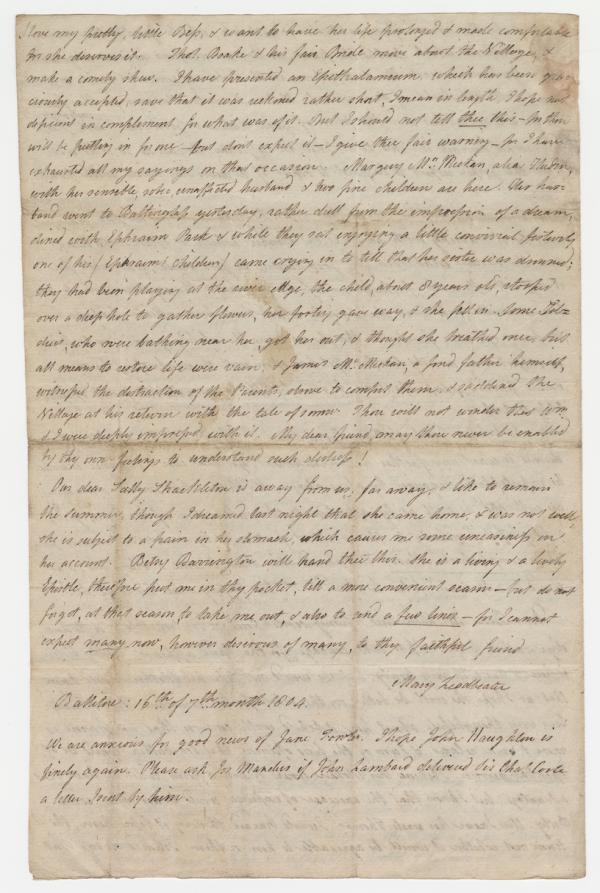 I love my pretty, little Bess, & want to have her life prolonged & made comfortable
for she deserves it. Thos. Boake & his fair Bride move about the Village, &
make a comely shew. I have presented an Epithalamium, which has been gra-
ciously accepted, save that it was reckoned rather short, I mean in length, I hope not
deficient in complement for what was of it. But I should not tell thee this – for thou
will be putting in for one – but dont expect it – I give thee fair warning – for I have
exhausted all my sayings on that occasion. Margery Mc. Mickan, alias
with her sensible, sober unaffected husband & two fine children are here. Her hus-
band went to Baltinglass yesterday, rather dull from the impression of a dream,
dined with Ephraim Pack & while they sat enjoying a little convivial festivity
one of his [Ephraim's children] came crying in to tell that her sister was drowned;
they had been playing at the river edge, the child, about 8 years old, stooped
over a deep hole to gather flowers, her footing gave way, & she fell in. Some Sol-
diers, who were bathing near her, got her out, & thought she breathed once, but
all means to restore life were vain. & James Mc. Mickan, a fond father himself,
witnessed the distraction of the Parents, strove to comfort them, & saddened the
Village at his return with the tale of sorrow. Thou will not wonder that
& I were deeply impressed with it. My dear friend, may thou never be enabled
by thy own feelings to understand such distress!
Our dear Sally Shackleton is away from us, far away, & like to remain
the summer, though I dreamed last night that she came home, & was not well
she is subject to a pain in her stomach, which causes me some uneasiness on
her account. Betsy Barrington will hand thee this. She is a living & a lively
Epistle, therefore put me in thy pocket, till a more convenient season – but do not
forget, at that season, to take me out, & also to send a few lines – for I cannot
expect many now, however desirous of many, to thy faithful friend
Mary Leadbeater
Ballitore: 16th. of 7th. month 1804.
We are anxious for good news of Jane. I hope John Haughton is
finely again. Please ask Jos. Mander if John Lambard delivered Dr. Chas. Coote
a letter sent by him.